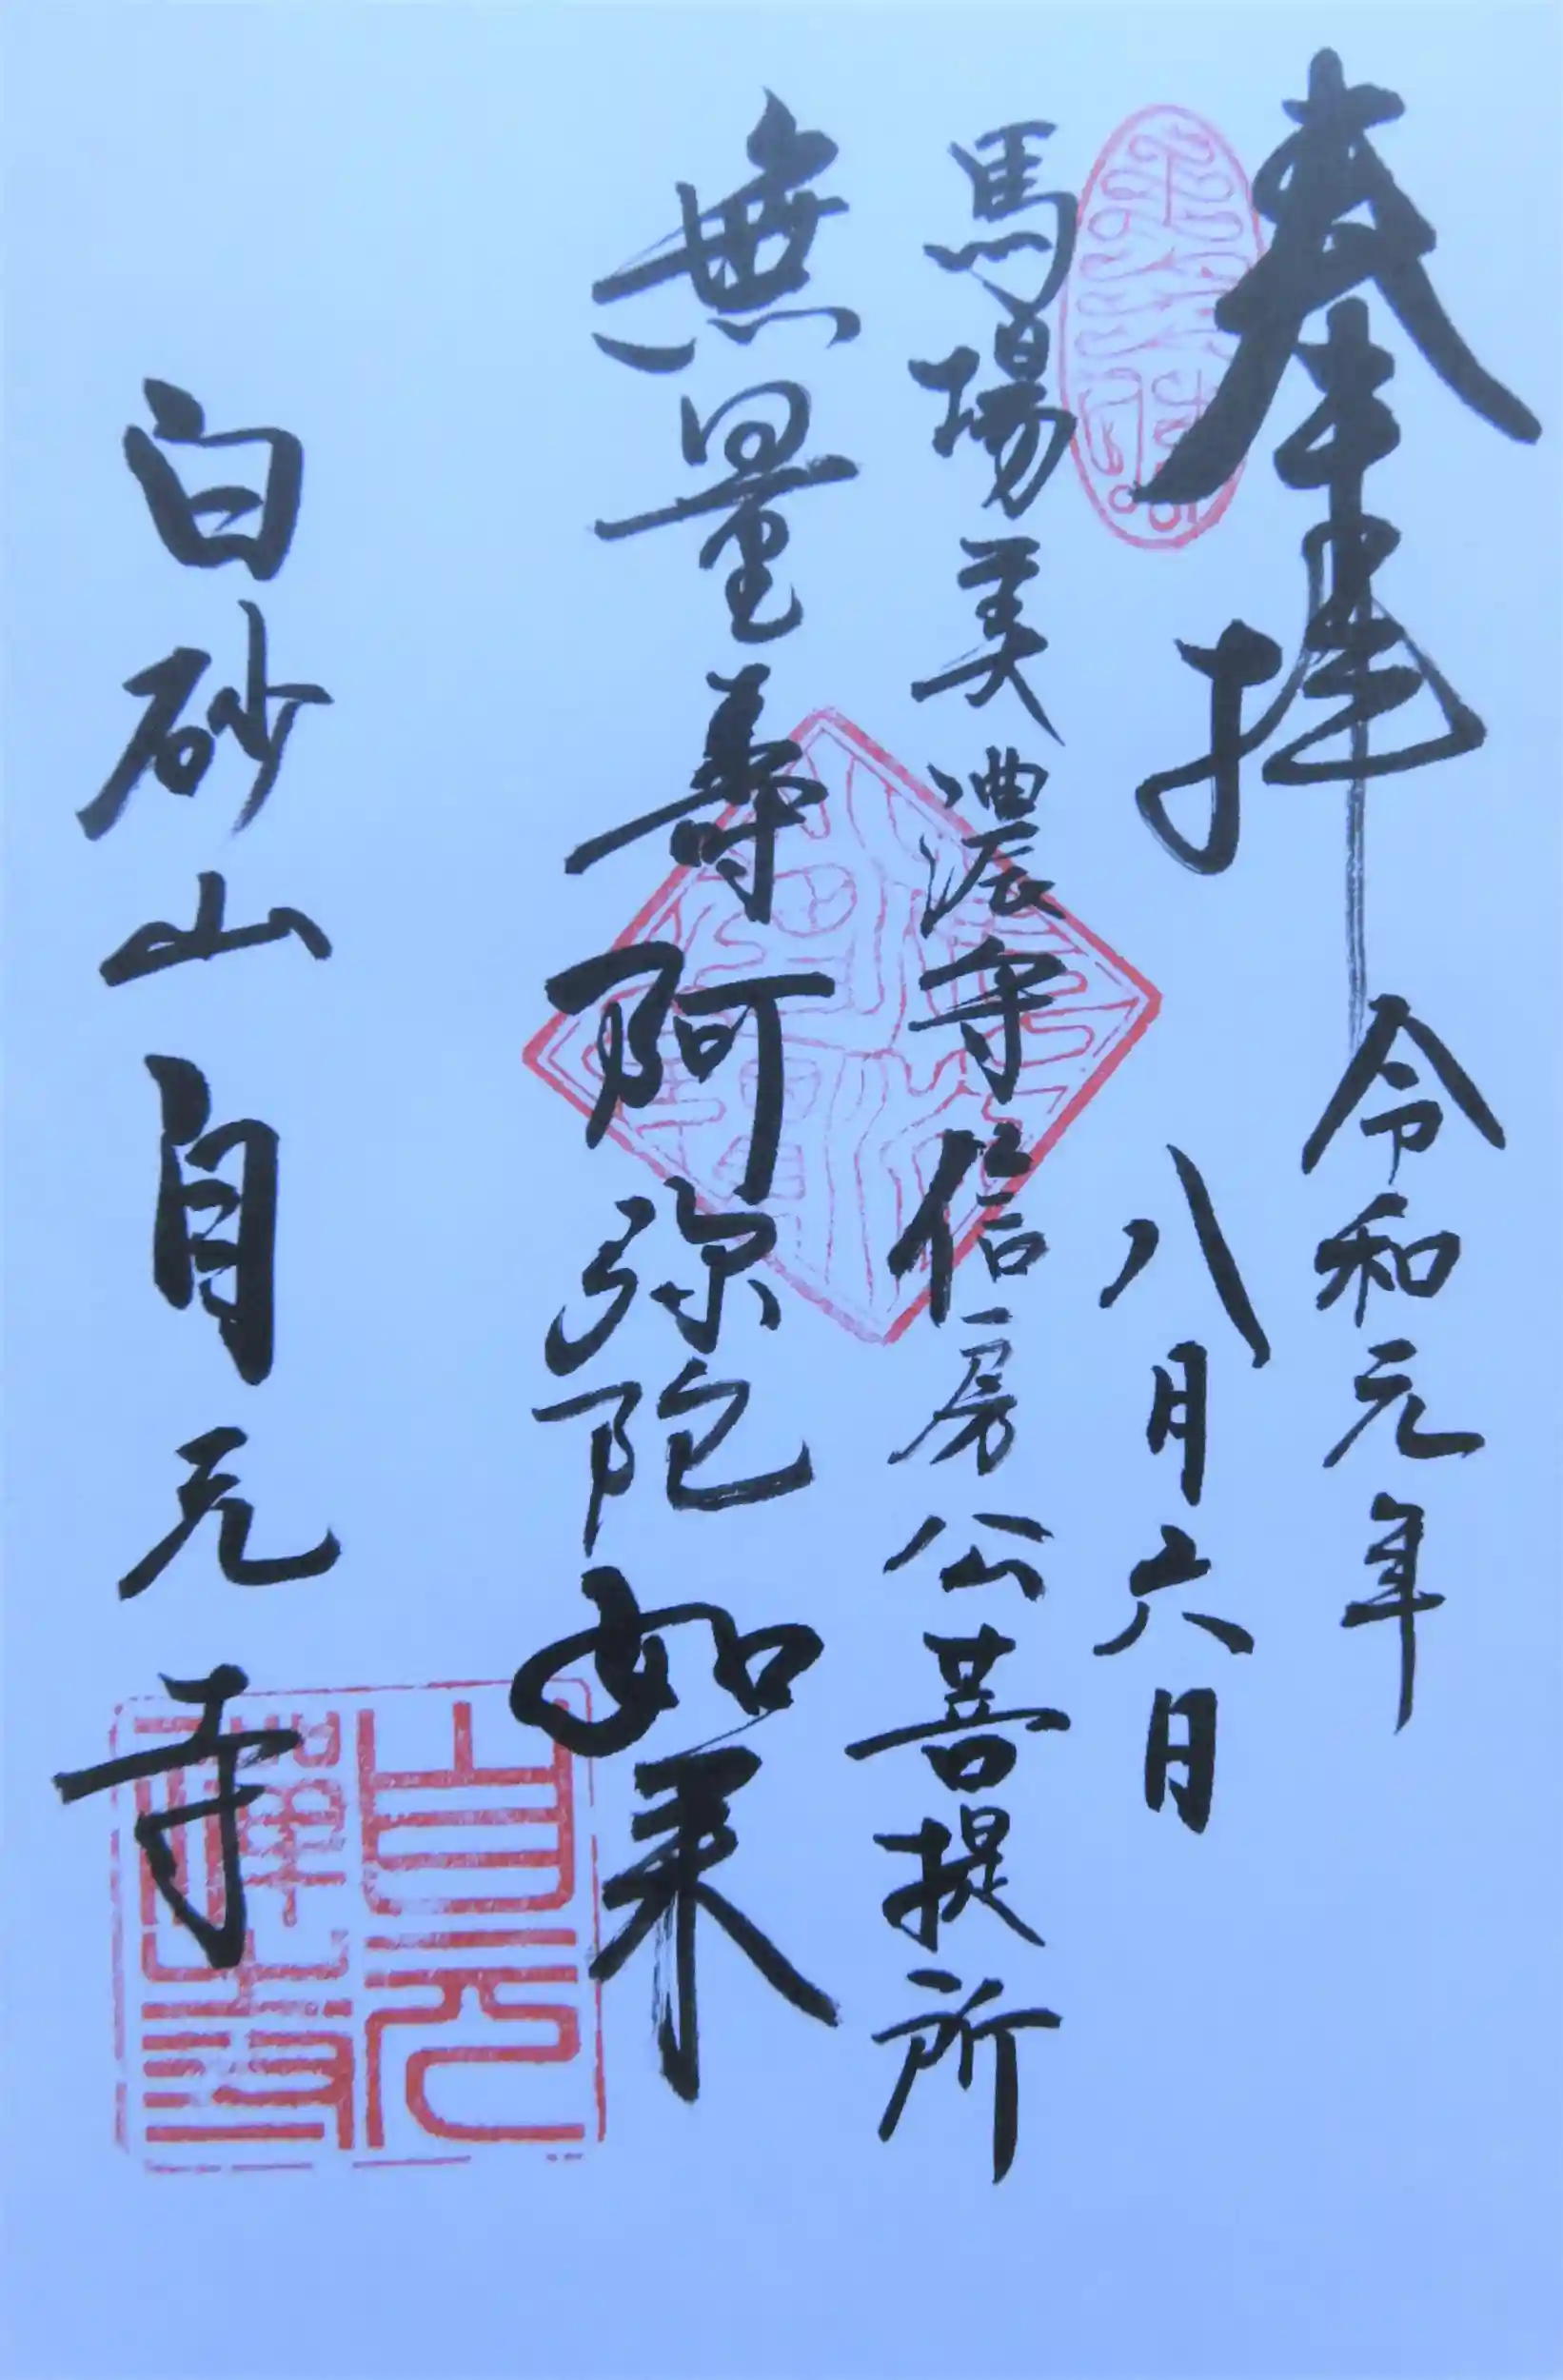 奉拝
令和元年
八月六日
馬場美濃守信房公菩提所
無量寿阿弥陀如来
白砂山自元寺
自元禅寺